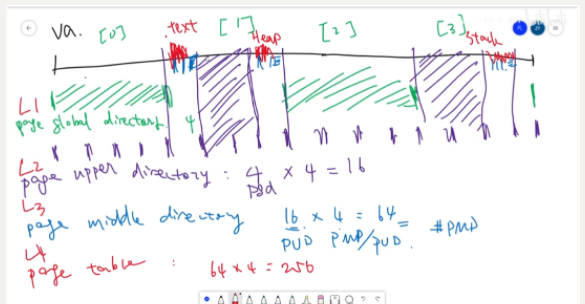 va. [0] .text [1] Heap [2] [3] Stack
L1
page global directory 4
L2
page upper directory : 4 × 4 = 16
pgd
L3
page middle directory 16 × 4 = 64 = #PMD
PUD PMD/PUD.
L4
page table : 64 × 4 = 256